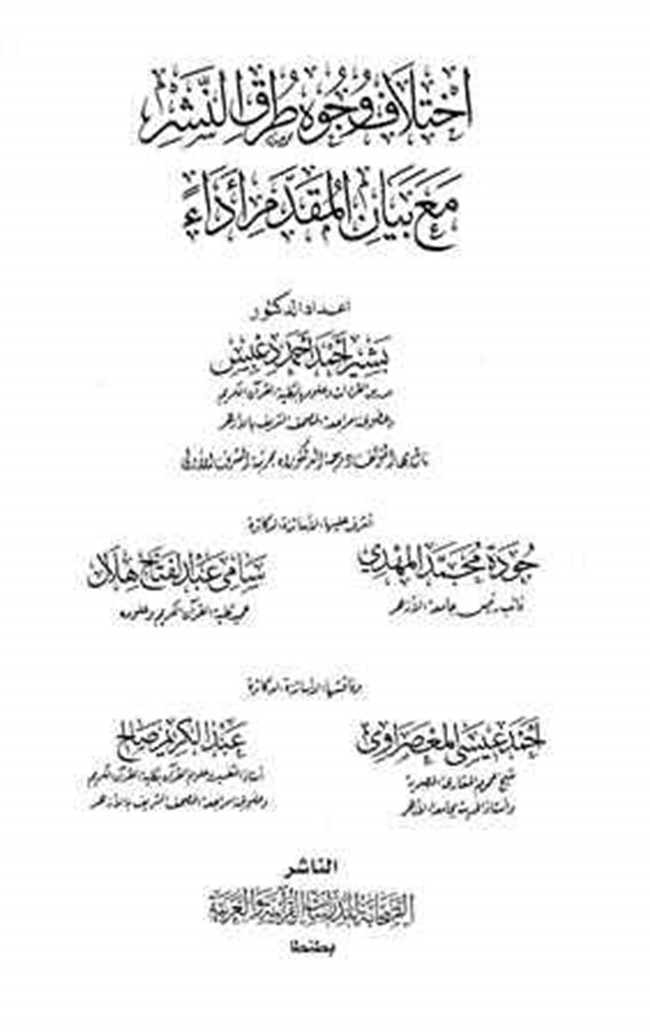 اخْتِلَافُ وُجُوهِ طُرُقِ النَّشْرِ
مَعَ بَيَانِ المُقَدَّمِ أَدَاءً
إعداد الدكتور
بشير أحمد أحمد دعبس
مدرس القراءات وعلومها بكلية القرآن الكريم
وعضو لجنة مراجعة المصحف الشريف بالأزهر
نال بها المؤلف درجة الدكتوراه بمرتبة الشرف الأولى
أشرف عليها الأساتذة الدكاترة
جودة محمد المهدي
نائب رئيس جامعة الأزهر
سامي عبد الفتاح هلال
عميد كلية القرآن الكريم وعلومه
وناقشها الأساتذة الدكاترة
أحمد عيسى المعصراوي
شيخ عموم المقارئ المصرية
وأستاذ الحديث بجامعة الأزهر
عبد الكريم صالح
أستاذ التفسير وعلوم القرآن بكلية القرآن الكريم
وعضو لجنة مراجعة المصحف الشريف بالأزهر
الناشر
للدراسات القرآنية والعربية
بطنطا